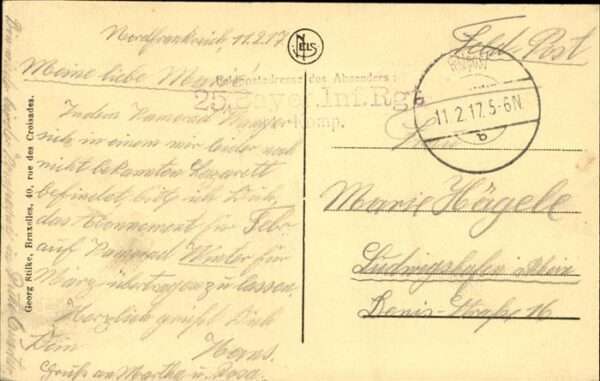 Nordfrankreich 11.2.17
Meine liebe Marie!
Indem Kamerad
sich in einem mir leider noch
nicht bekannten Lazarett
befindet, bitt ich Dich,
das Abonnement für Febr.
auf Kamerad Winter für
März übertragen zu lassen.
Herzlich grüßt Dich
Dein Hans.
Gruß an Martha u. Rosa.
Georg Stilke, Bruxelles, 40, rue des Croisades.
NELS
Feldpostadresse des Absenders:
25. Bayer. Inf. Rgt.
Komp.
Feld-Post
11.2.17.5-6N
b
Frau
Marie Hägele
Ludwigshafen a/Rhein
Straße 16